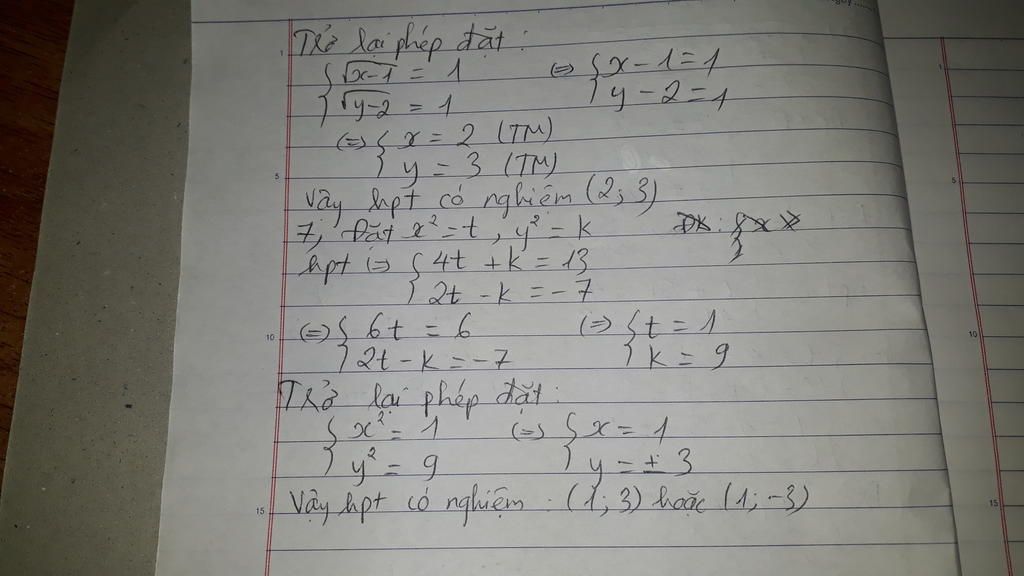 1
Trở lại phép đặt :
{ √x-1 = 1 (=) { x - 1 = 1
√y-2 = 1 y - 2 = 1
(=) { x = 2 (TM)
y = 3 (TM)
5
Vậy hpt có nghiệm (2; 3)
7, Đặt x² = t, y² = k ĐK : { x
hpt (=) { 4t + k = 13
2t - k = -7
10
(=) { 6t = 6 (=) { t = 1
2t - k = -7 k = 9
Trở lại phép đặt :
{ x² = 1 (=) { x = 1
y² = 9 y = ± 3
15
Vậy hpt có nghiệm : (1; 3) hoặc (1; -3)
1
5
10
15